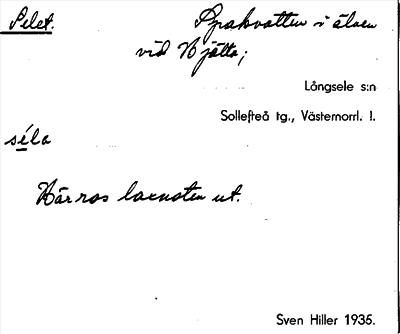 Selet. Spakvatten i älven
vid Hjätta;
Långsele s:n
Sollefteå tg., Västernorrl. l.
séla
Här ros laxnoten ut.
Sven Hiller 1935.